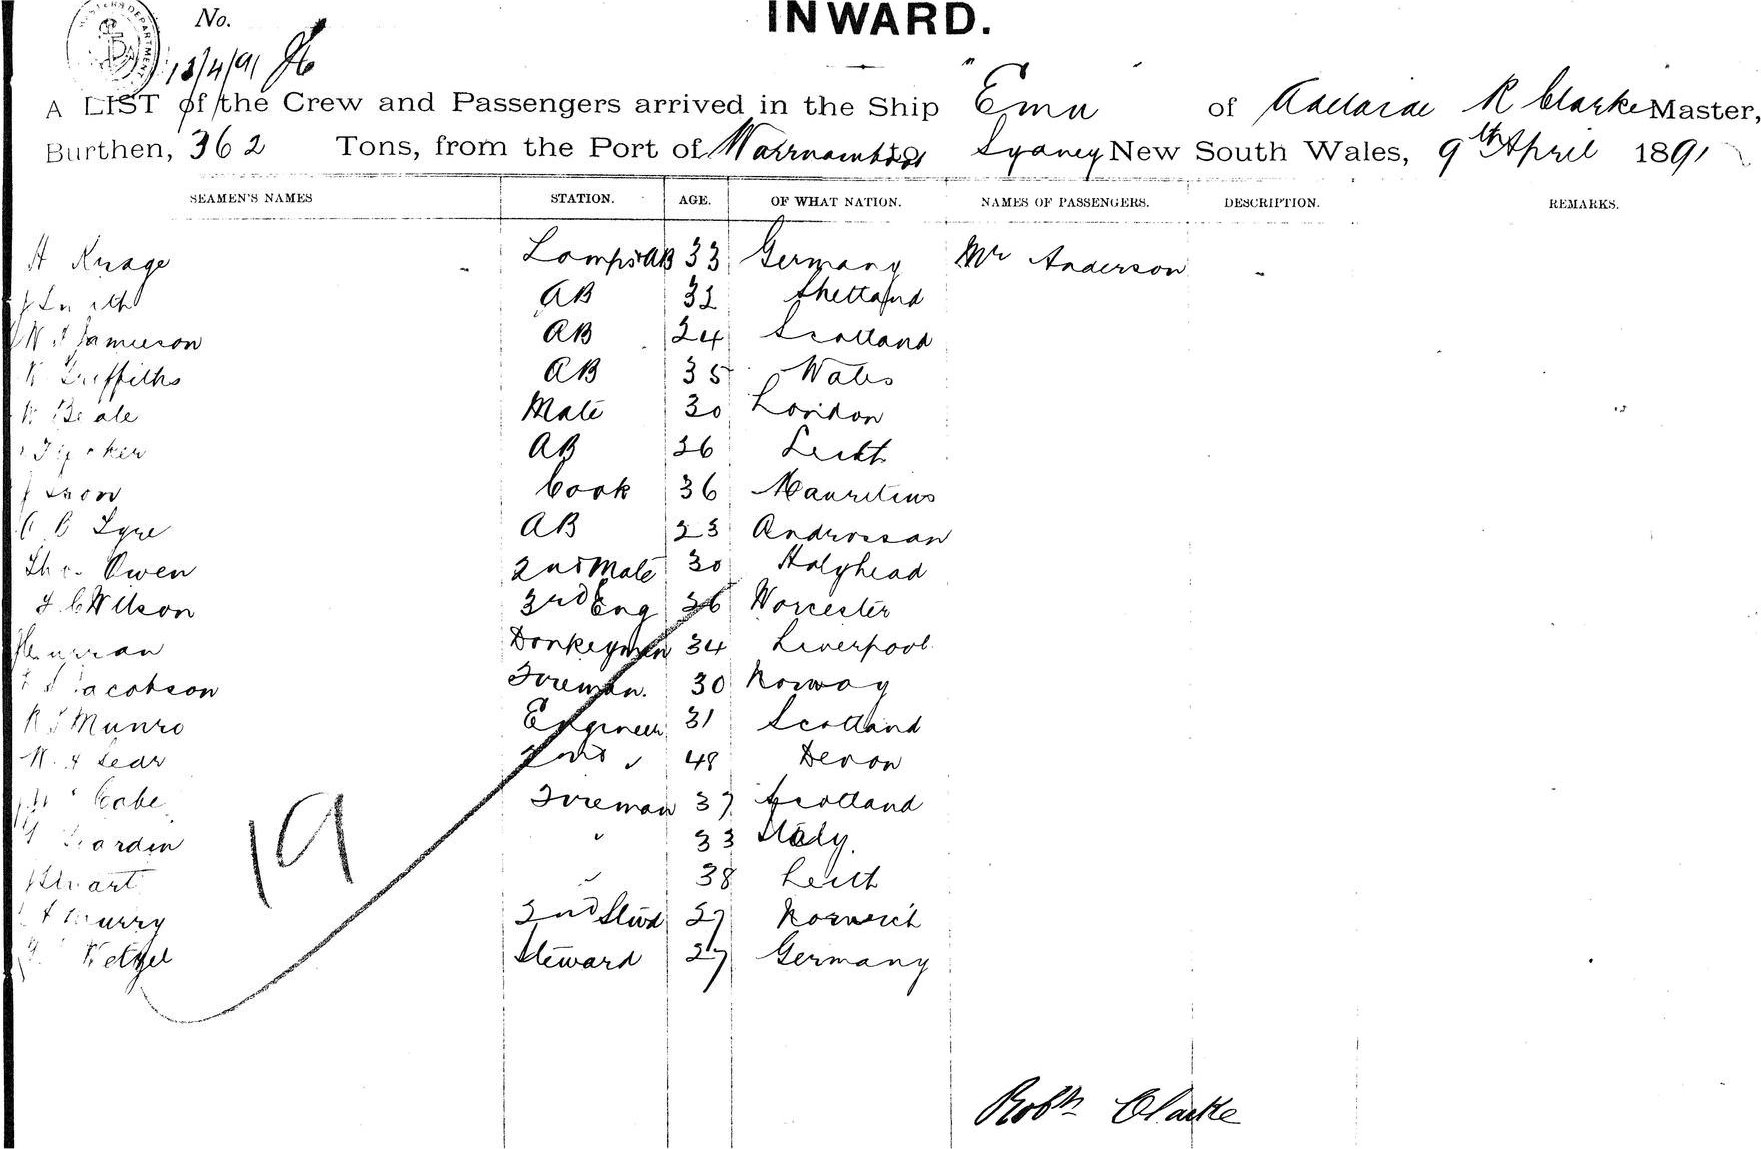 No.
INWARD.
12/4/91
A LIST of the Crew and Passengers arrived in the Ship "Emu" of Adelaide R Clarke Master,
Burthen, 362 Tons, from the Port of Warrnambool to Sydney New South Wales, 9th April 1891
SEAMEN'S NAMES STATION. AGE. OF WHAT NATION. NAMES OF PASSENGERS. DESCRIPTION. REMARKS.
H Krage Lamps & AB 33 Germany Mr Anderson
J Smith AB 32 Shetland
Jamieson AB 24 Scotland
Griffiths AB 35 Wales
W Beale Mate 30 London
AB 26 Leith
Cook 36 Mauritius
AB 23 Androssan
Tho. Owen 2nd Mate 30 Holyhead
C Wilson 3rd Eng 26 Worcester
Curran Donkeyman 34 Liverpool
Jacobson Fireman. 30 Norway
Munro Engineer 31 Scotland
2nd " 48 Devon
Cabe Fireman 37 Scotland
" 33 Italy.
Stuart " 38 Leith
Murry 2nd Stwd 27 Norwich
Wetzel Steward 27 Germany
19
Robt Clarke